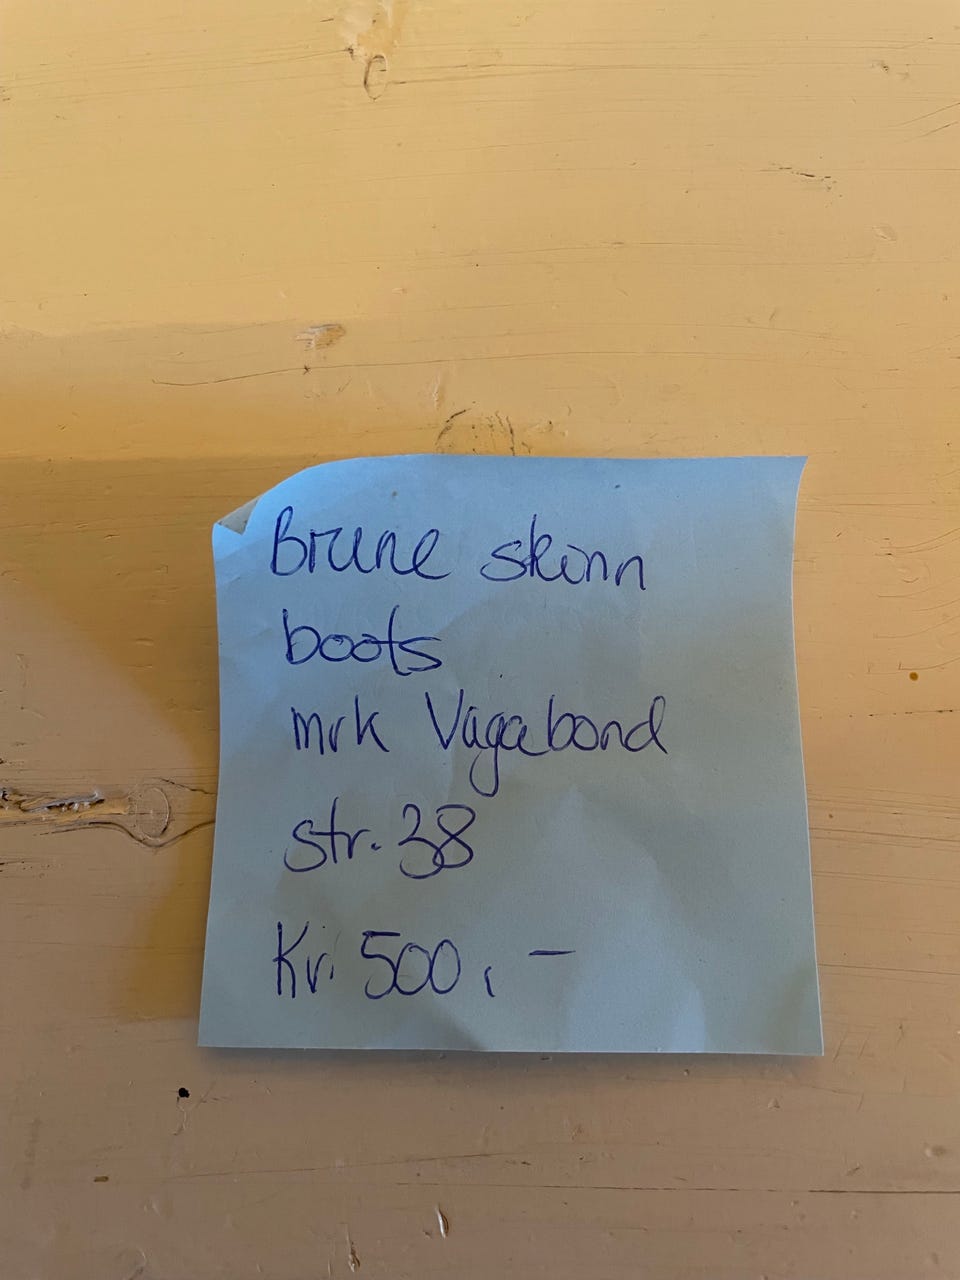 Brune skinn
boots
mrk Vagabond
str. 38
Kr. 500,-